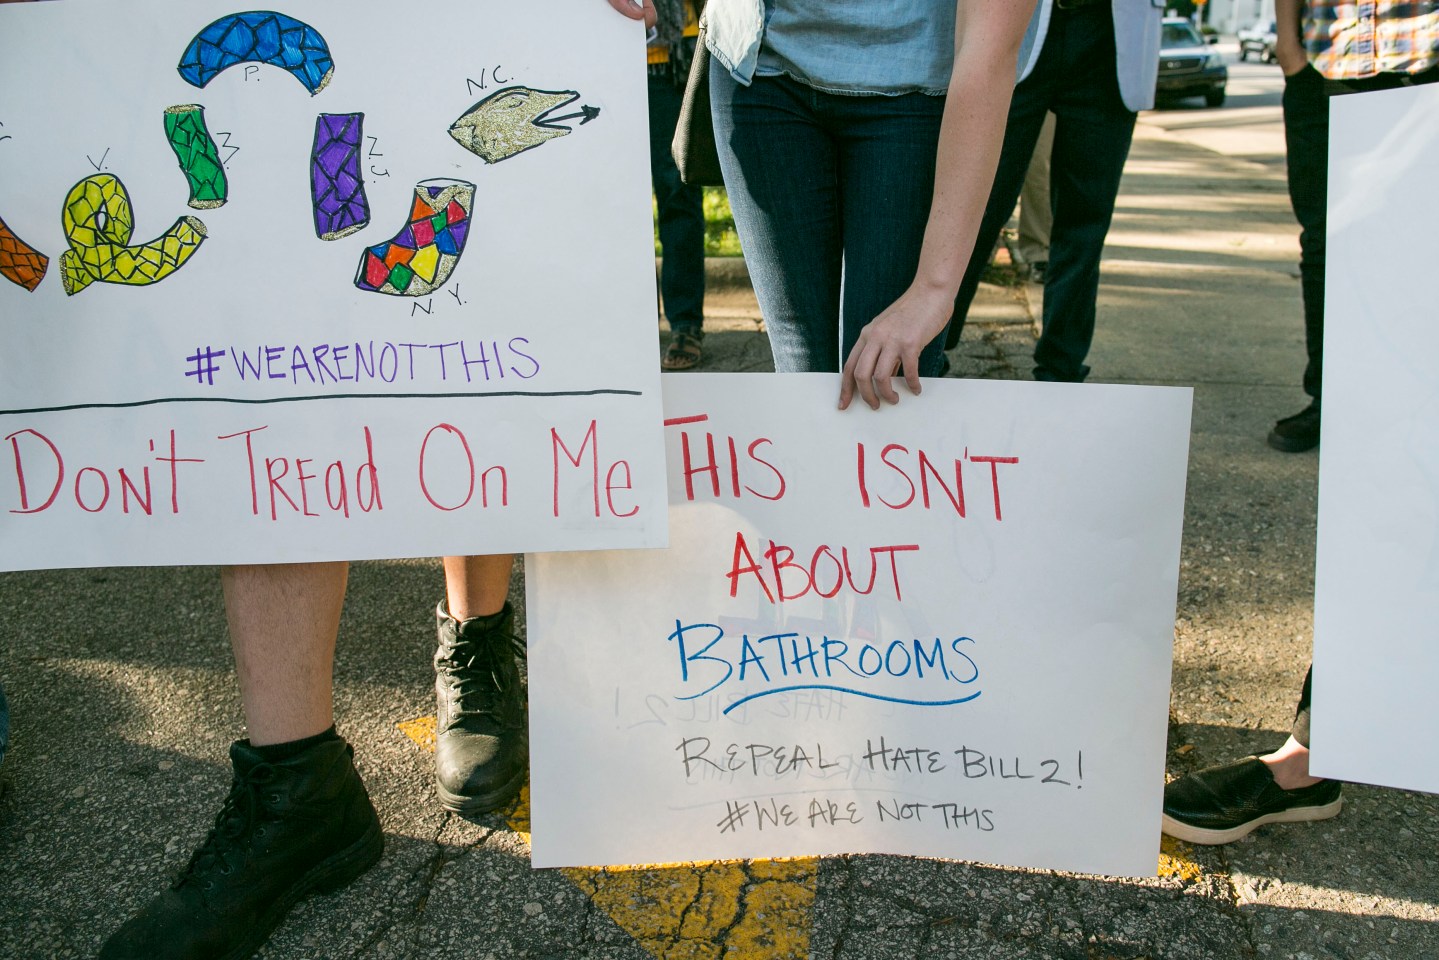 P.
N.C.
V.
M.
N.J.
N.Y.
#WEARENOTTHIS
DON'T TREAD ON ME
THIS ISN'T
ABOUT
BATHROOMS
REPEAL HATE BILL 2!
#WE ARE NOT THIS